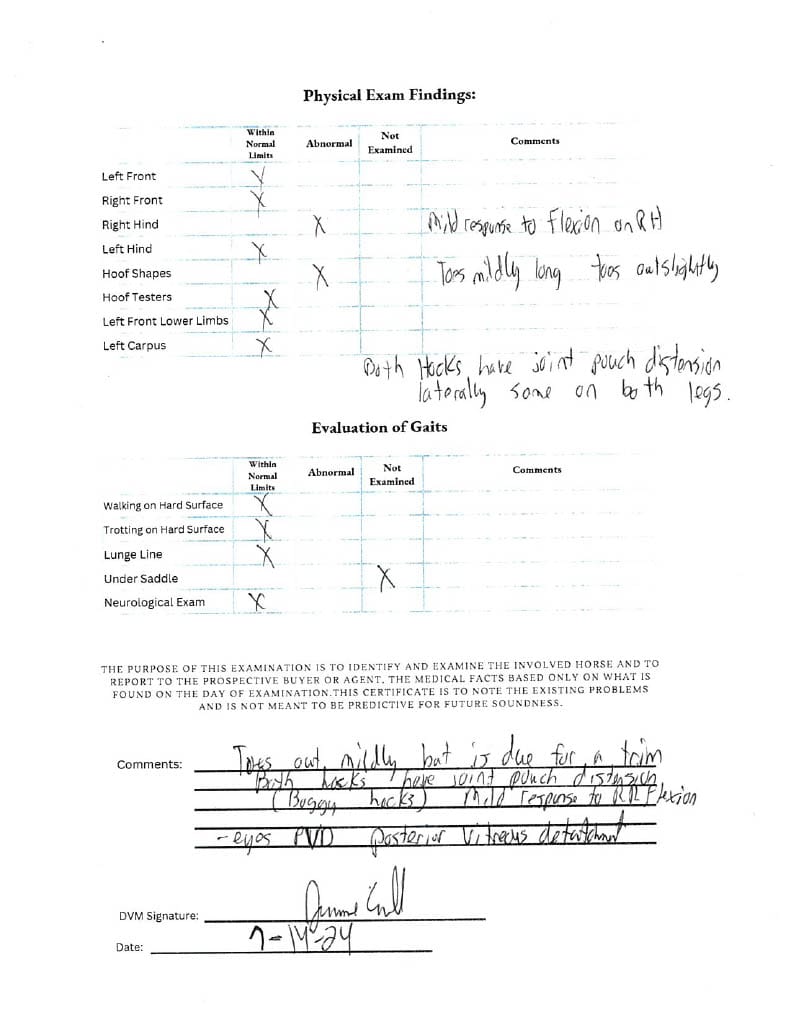 Physical Exam Findings:
Within Normal Limits Abnormal Not Examined Comments
Left Front X
Right Front X
Right Hind X Mild response to Flexion on RH
Left Hind X
Hoof Shapes X Toes mildly long toes out slightly
Hoof Testers X
Left Front Lower Limbs X
Left Carpus X
Both Hocks have joint pouch distension
laterally some on both legs.
Evaluation of Gaits
Within Normal Limits Abnormal Not Examined Comments
Walking on Hard Surface X
Trotting on Hard Surface X
Lunge Line X
Under Saddle X
Neurological Exam X
THE PURPOSE OF THIS EXAMINATION IS TO IDENTIFY AND EXAMINE THE INVOLVED HORSE AND TO
REPORT TO THE PROSPECTIVE BUYER OR AGENT, THE MEDICAL FACTS BASED ONLY ON WHAT IS
FOUND ON THE DAY OF EXAMINATION.THIS CERTIFICATE IS TO NOTE THE EXISTING PROBLEMS
AND IS NOT MEANT TO BE PREDICTIVE FOR FUTURE SOUNDNESS.
Comments: Toes out mildly but is due for a trim
Both hocks have joint pouch distension
(Boggy hocks) Mild response to Flexion
-eyes PVD posterior vitreous
DVM Signature:
Date: 7-14-24